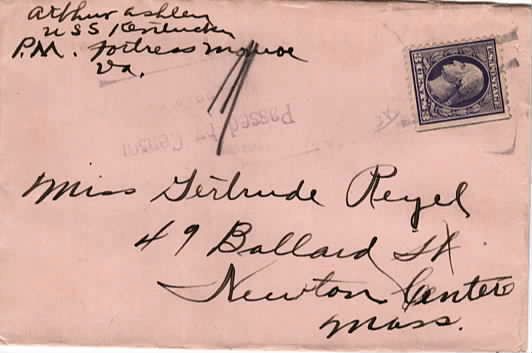 Arthur Ashley
USS Kentucky
P.M. Fortress Monroe
Va.
U.S. POSTAGE
Passed by Censor
Miss Gertrude Reyel
49 Ballard St
Newton Centre
Mass.